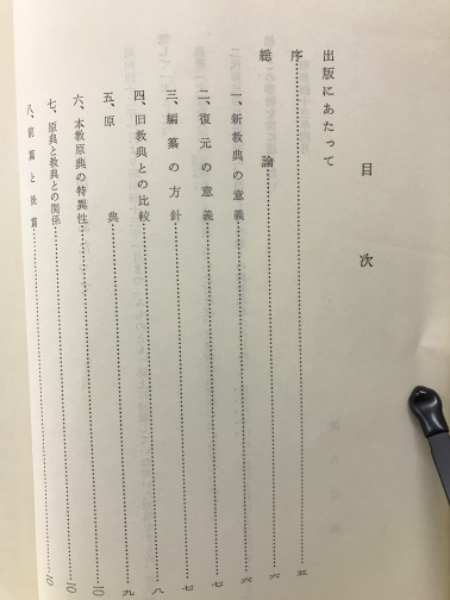 目次
出版にあたって
序……五
総論……六
一、新教典の意義……六
二、復元の意義……七
三、編纂の方針……七
四、旧教典との比較……八
五、原典……九
六、本教原典の特異性……一〇
七、原典と教典との関係……一〇
八、前篇と後篇……一〇